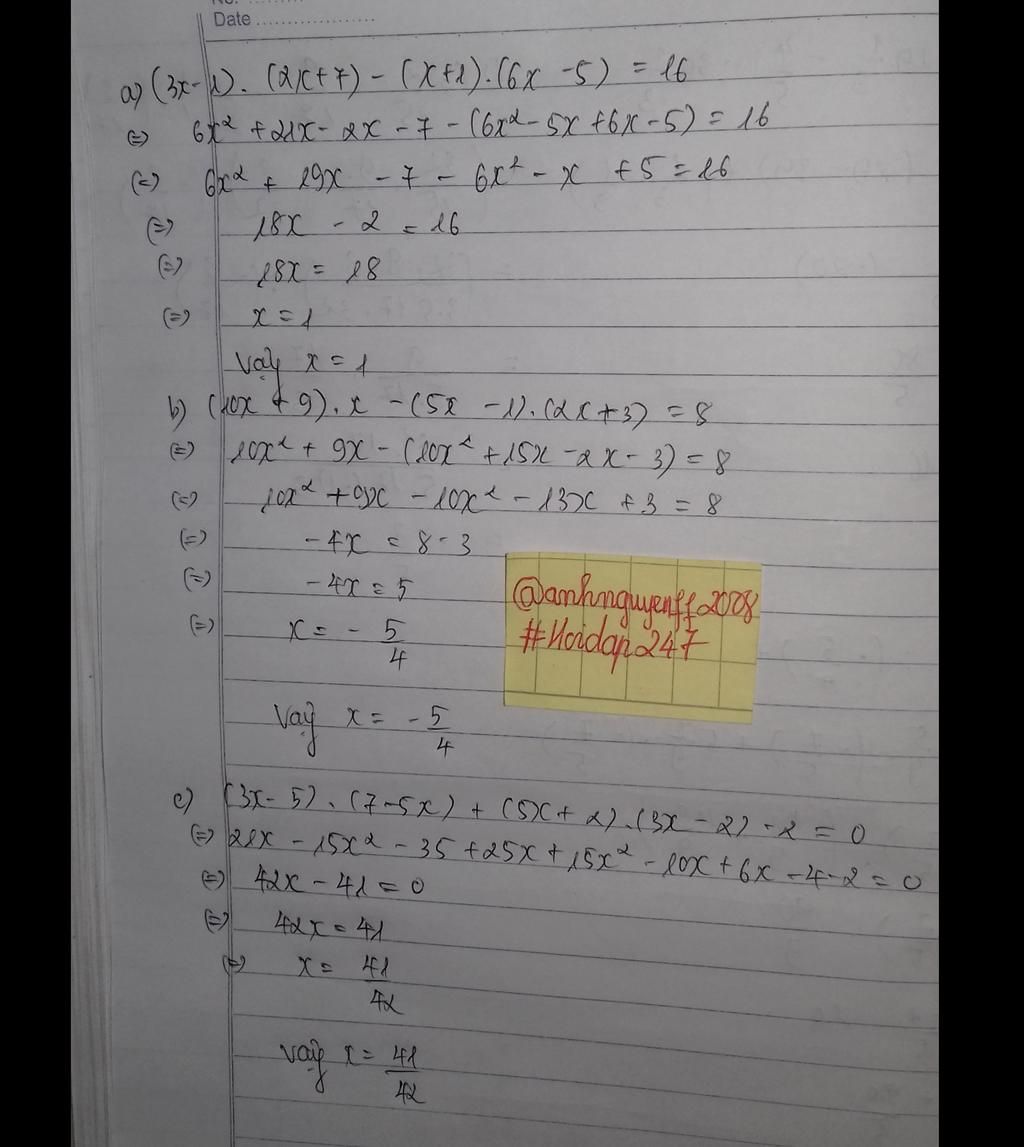 No.
Date
a) (3x-1).(2x+7) - (x+1).(6x-5) = 16
(=) 6x² + 21x - 2x - 7 - (6x² - 5x + 6x - 5) = 16
(=) 6x² + 19x - 7 - 6x² - x + 5 = 16
(=) 18x - 2 = 16
(=) 18x = 18
(=) x = 1
Vậy x = 1
b) (10x + 9).x - (5x - 1).(2x + 3) = 8
(=) 10x² + 9x - (10x² + 15x - 2x - 3) = 8
(=) 10x² + 9x - 10x² - 13x + 3 = 8
(=) -4x = 8 - 3
(=) -4x = 5
(=) x = - 5/4
@anhnguyenff2008
#Hoidap247
Vậy x = - 5/4
c) (3x - 5).(7 - 5x) + (5x + 2).(3x - 2) - 2 = 0
(=) 21x - 15x² - 35 + 25x + 15x² - 10x + 6x - 4 - 2 = 0
(=) 42x - 41 = 0
(=) 42x = 41
(=) x = 41/42
Vậy x = 41/42